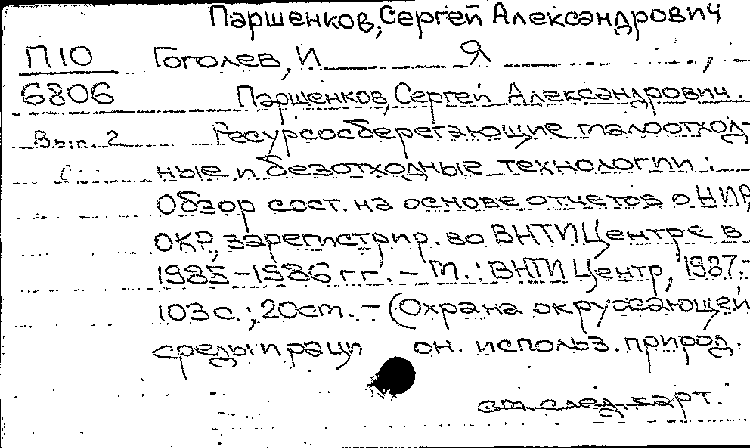 Паршенков, Сергей Александрович
П10 Гоголев, И Я ,
6806 Паршенков, Сергей Александрович.
Вып. 2 Ресурсосберегающие малоотход-
ные и безотходные технологии :
Обзор сост. на основе отчетов о НИР,
ОКР, зарегистрир. во ВНТИЦентре в
1985-1986 гг. - М. : ВНТИЦентр, 1987.-
103 с. ; 20 см. - (Охрана окружающей
среды и раци он. использ. природ.
см. след. карт.